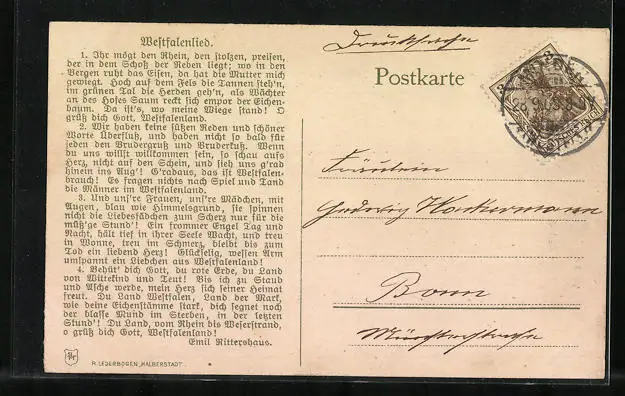 Westfalenlied.
1. Ihr mögt den Rhein, den stolzen, preisen,
der in dem Schoß der Reben liegt; wo in den
Bergen ruht das Eisen, da hat die Mutter mich
gewiegt. Hoch auf dem Fels die Tannen steh'n,
im grünen Tal die Herden geh'n, als Wächter
an des Hofes Saum reckt sich empor der Eichen-
baum. Da ist's, wo meine Wiege stand! O
grüß dich Gott, Westfalenland.
2. Wir haben keine süßen Reden und schöner
Worte Überfluß, und haben nicht so bald für
jeden den Brudergruß und Bruderkuß. Wenn
du uns willst willkommen sein, so schau aufs
Herz, nicht auf den Schein, und sieh uns g'rad
hinein ins Aug'! G'radaus, das ist Westfalen-
brauch! Es fragen nichts nach Spiel und Tand
die Männer im Westfalenland.
3. Und uns're Frauen, uns're Mädchen, mit
Augen, blau wie Himmelsgrund, sie spinnen
nicht die Liebesfädchen zum Scherz nur für die
müß'ge Stund'! Ein frommer Engel Tag und
Nacht, hält tief in ihrer Seele Wacht, und treu
in Wonne, treu im Schmerz, bleibt bis zum
Tod ein liebend Herz! Glückselig, wessen Arm
umspannt ein Liebchen aus Westfalenland!
4. Behüt' dich Gott, du rote Erde, du Land
von Wittekind und Teut! Bis ich zu Staub
und Asche werde, mein Herz sich seiner Heimat
freut. Du Land Westfalen, Land der Mark,
wie deine Eichenstämme stark, dich segnet noch
der blasse Mund im Sterben, in der letzten
Stund'! Du Land, vom Rhein bis Weserstrand,
o grüß dich Gott, Westfalenland!
Emil Rittershaus.
R. LEDERBOGEN, HALBERSTADT.
Drucksache
Postkarte
3
Fräulein
Hedwig
Bonn